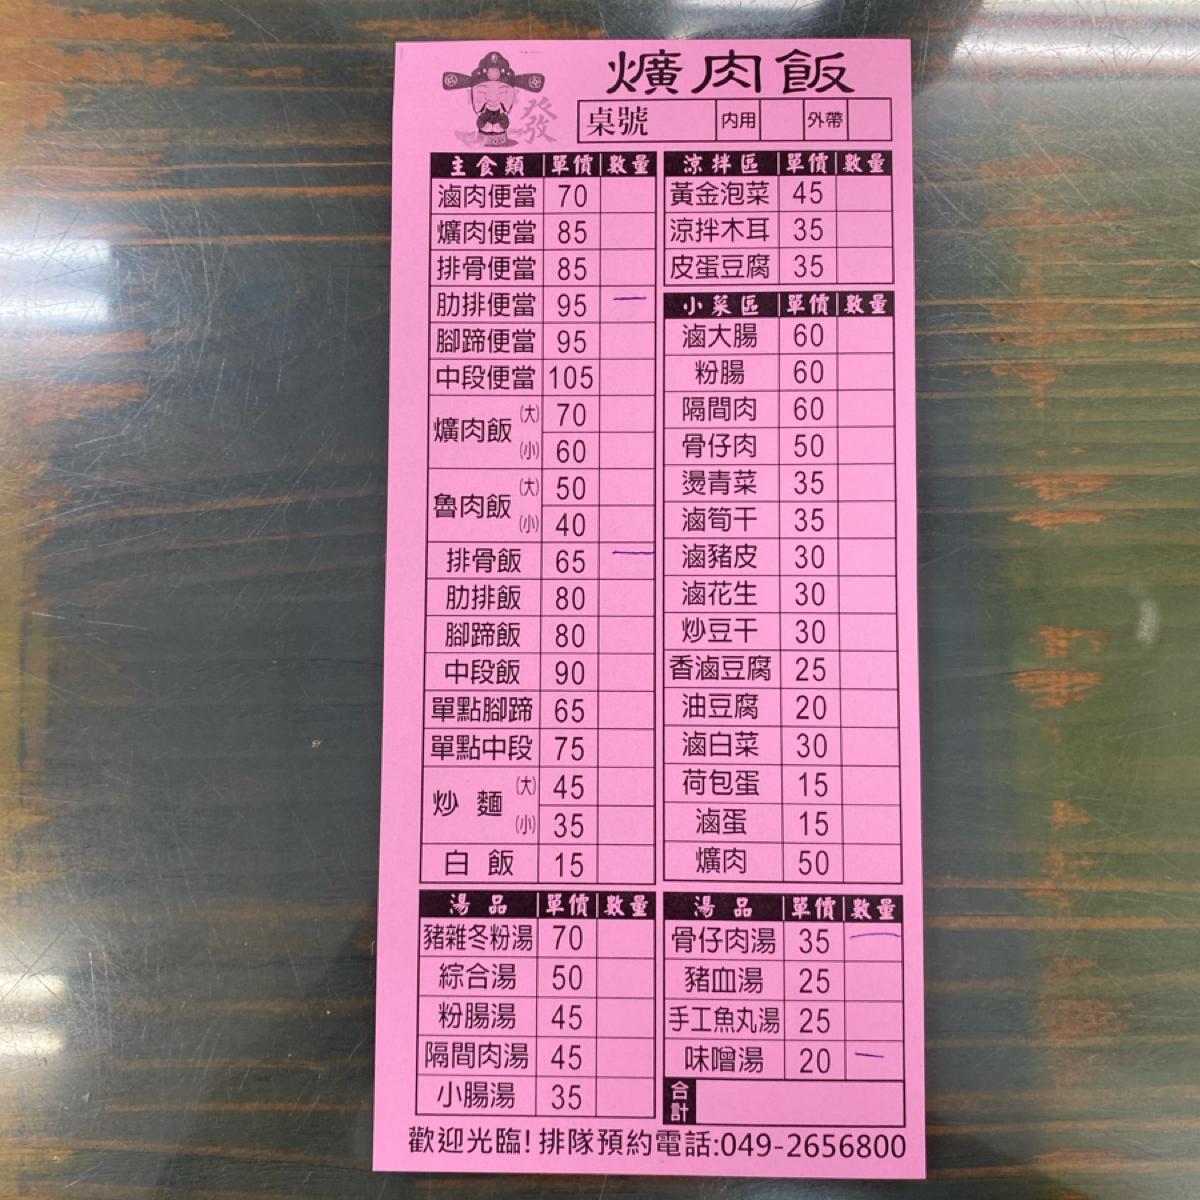 爌肉飯
發
桌號 內用 外帶
主食類 單價 數量
滷肉便當 70
爌肉便當 85
排骨便當 85
肋排便當 95 一
腳蹄便當 95
中段便當 105
爌肉飯 (大) 70
(小) 60
魯肉飯 (大) 50
(小) 40
排骨飯 65 一
肋排飯 80
腳蹄飯 80
中段飯 90
單點腳蹄 65
單點中段 75
炒麵 (大) 45
(小) 35
白飯 15
涼拌區 單價 數量
黃金泡菜 45
涼拌木耳 35
皮蛋豆腐 35
小菜區 單價 數量
滷大腸 60
粉腸 60
隔間肉 60
骨仔肉 50
燙青菜 35
滷筍干 35
滷豬皮 30
滷花生 30
炒豆干 30
香滷豆腐 25
油豆腐 20
滷白菜 30
荷包蛋 15
滷蛋 15
爌肉 50
湯品 單價 數量
豬雜冬粉湯 70
綜合湯 50
粉腸湯 45
隔間肉湯 45
小腸湯 35
湯品 單價 數量
骨仔肉湯 35 一
豬血湯 25
手工魚丸湯 25
味噌湯 20 一
合計
歡迎光臨! 排隊預約電話:049-2656800